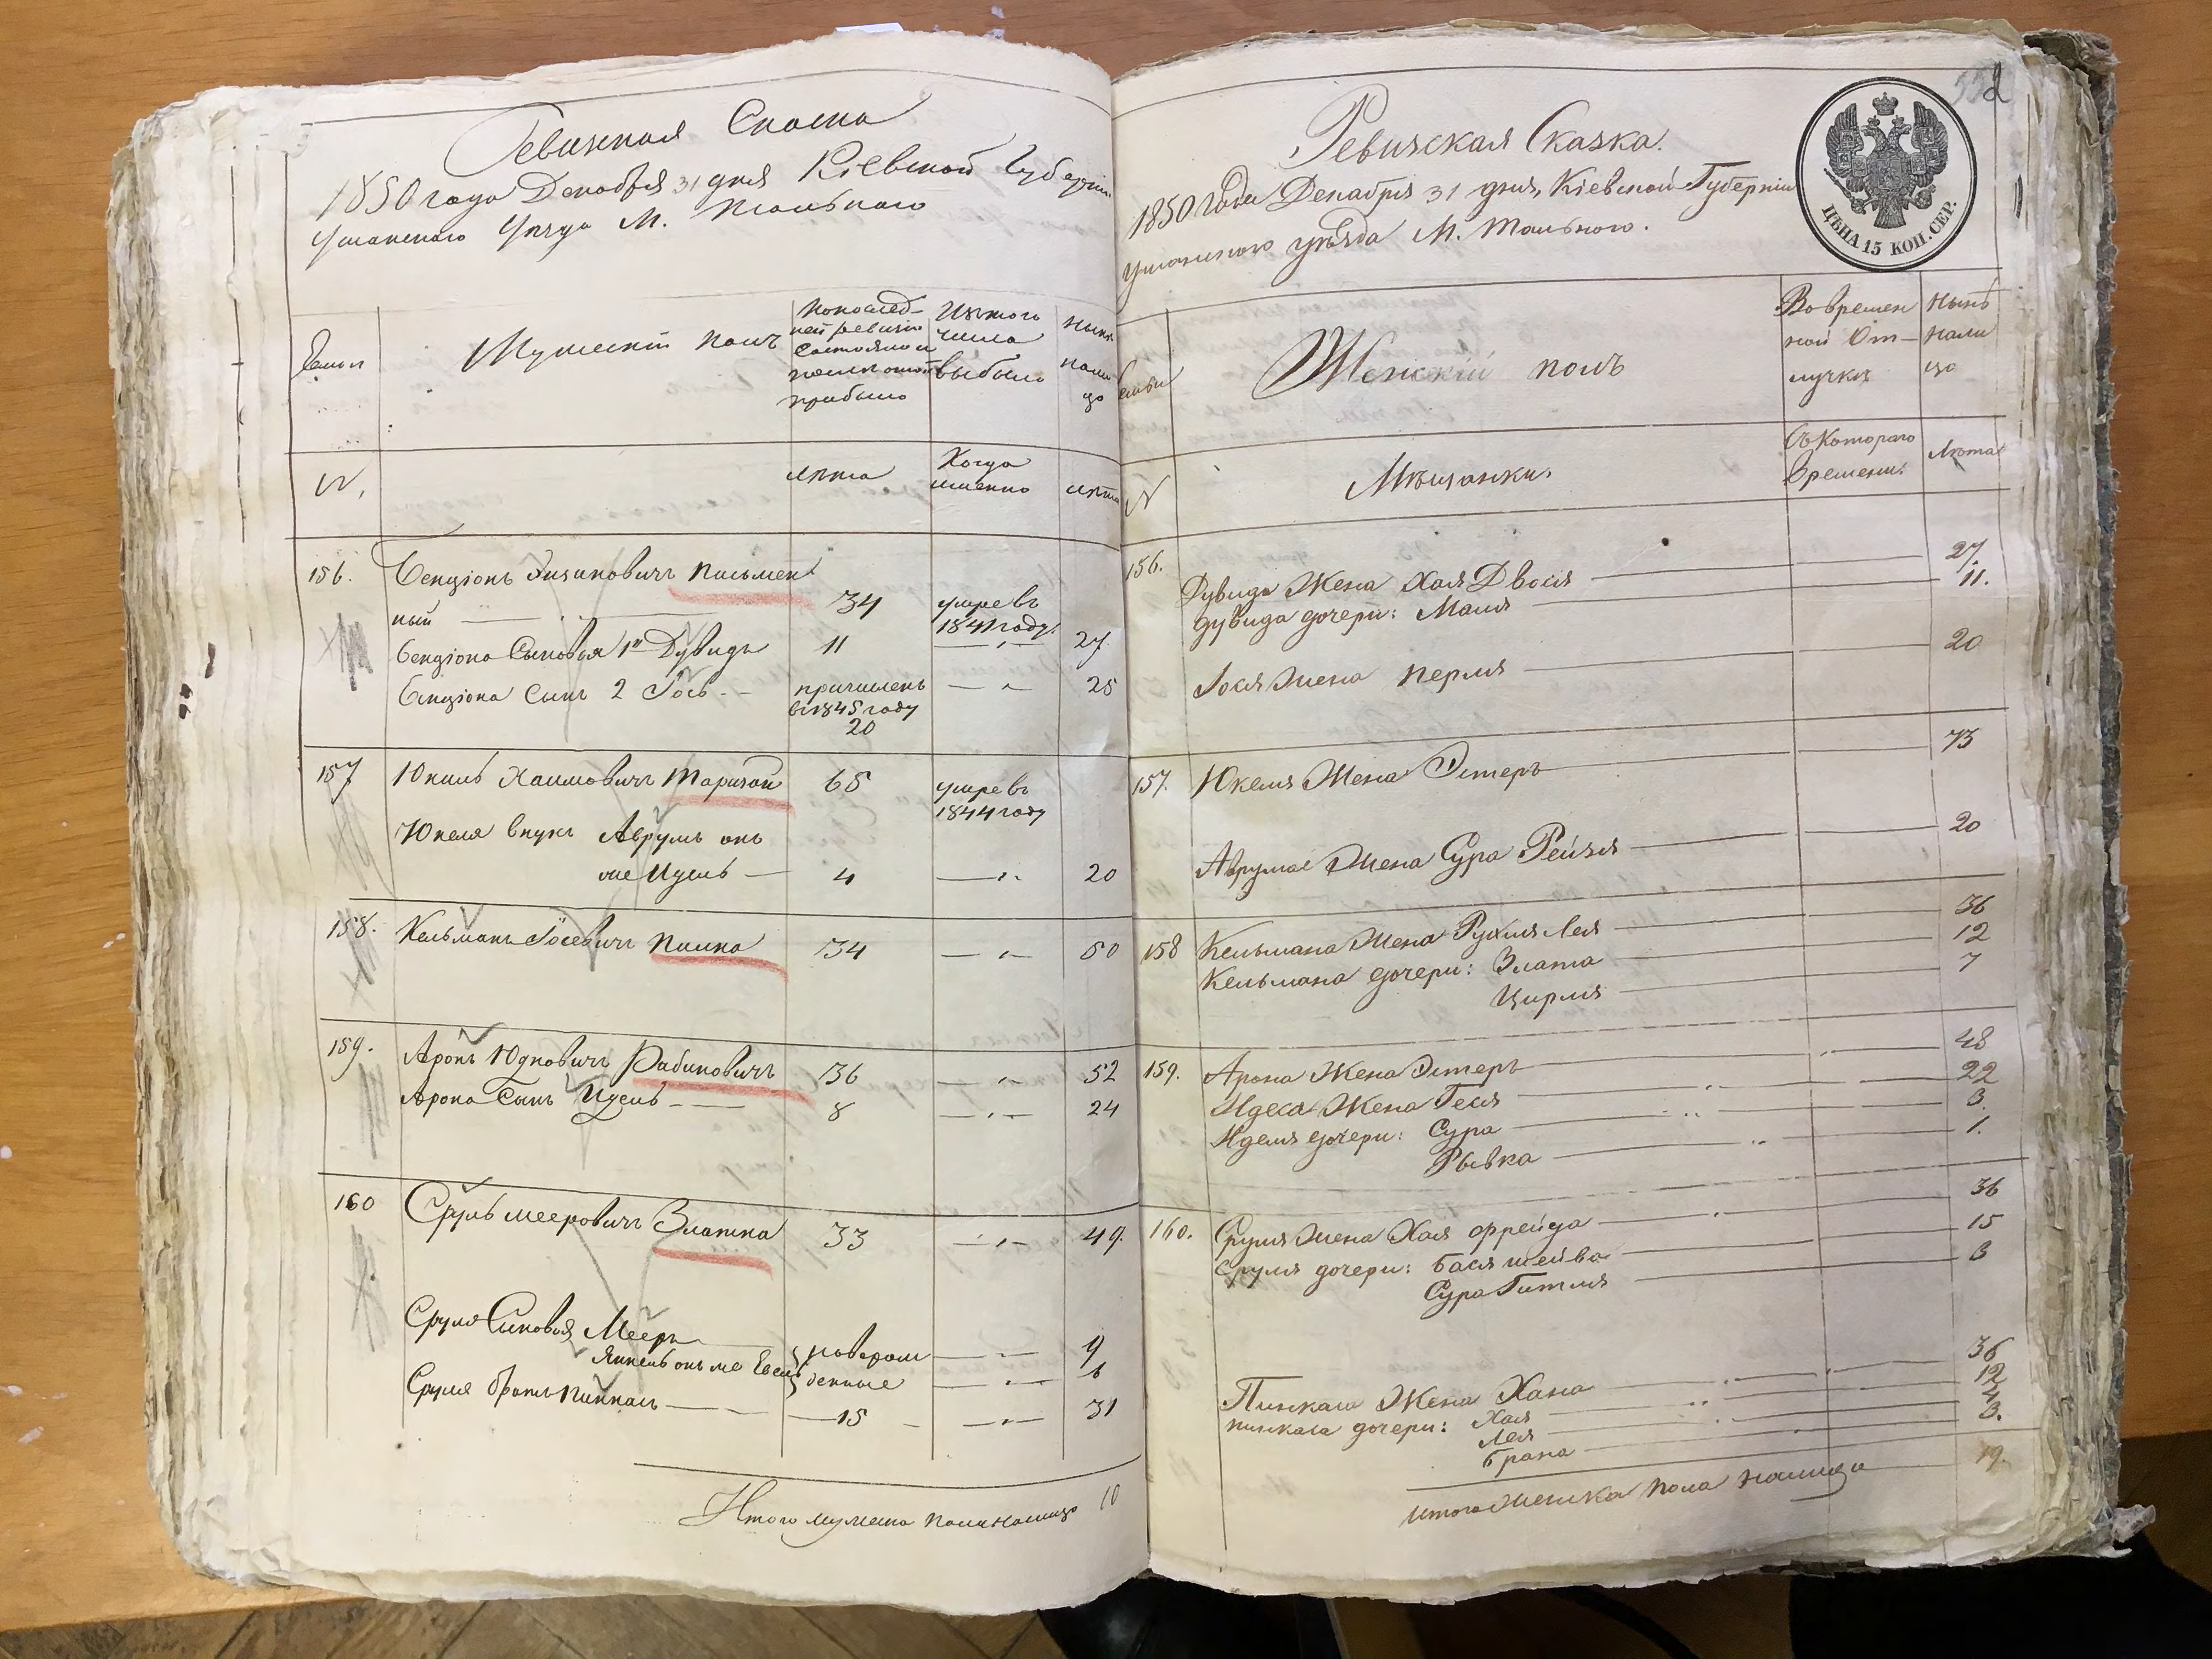 Ревизская Сказка
1850 года Декабря 31 дня Кіевской Губерніи
Уманского Уезда М. Тального
Семьи
Мужескій полъ
По послед-
ней ревизіи
состояло и
после оной
прибыло
Изъ того
числа
выбыло
Ныне
нали
цо
N,
лета
Когда
именно
лета
156.
Бенціонъ Ицковичъ Письмен
ный
34
умре въ
1841 году.
Бенціона Сыновья 1й Дувидъ
11
27.
Бенціона Сынъ 2 Іось
причисленъ
въ 1845 году
20
25
157
Юкиль Хаимовичъ
65
умре въ
1844 году
Юкеля внукъ Аврумъ онъ
же Идель
4
20
158.
Кельманъ Іосевичъ
34
50
159.
Аронъ Юдковичъ Рабиновичъ
36
52
Арона Сынъ Идель
8
24
160
Сруль Мееровичъ Златка
33
49.
Сруля Сыновья Мееръ
новорож
9
Янкель онъ же
денные
6
Сруля братъ Пинкасъ
15
31
Итого мужеска пола налицо 10
Ревизская Сказка.
1850 года Декабря 31 дня, Кіевской Губерніи
Уманского уезда М. Тального.
ЦѢНА 15 КОП. СЕР.
Семьи
Женскій полъ
Во времен
ной От-
лучке
Ныне
нали
цо
N
Мещанки.
Съ Котораго
времени.
Лета
156.
Дувида Жена Хая Двося
27.
Дувида дочери: Маля
11.
Іося Жена Перля
20
157.
Юкеля Жена Эстеръ
73
Аврума Жена Сура Рейзя
20
158
Кельмана Жена Рухля Лея
36
Кельмана дочери: Злата
12
Цирля
7
159.
Арона Жена Эстеръ
48
Иделя Жена Геся
22
Иделя дочери: Сура
3.
Рывка
1.
160.
Сруля Жена Хая Фрейда
36
Сруля дочери: Бася Шейва
15
Сура Гитля
3
Пинкаса Жена Хана
36
Пинкаса дочери: Хая
12
Лея
4
Брана
3.
Итого Женска пола налицо
19.